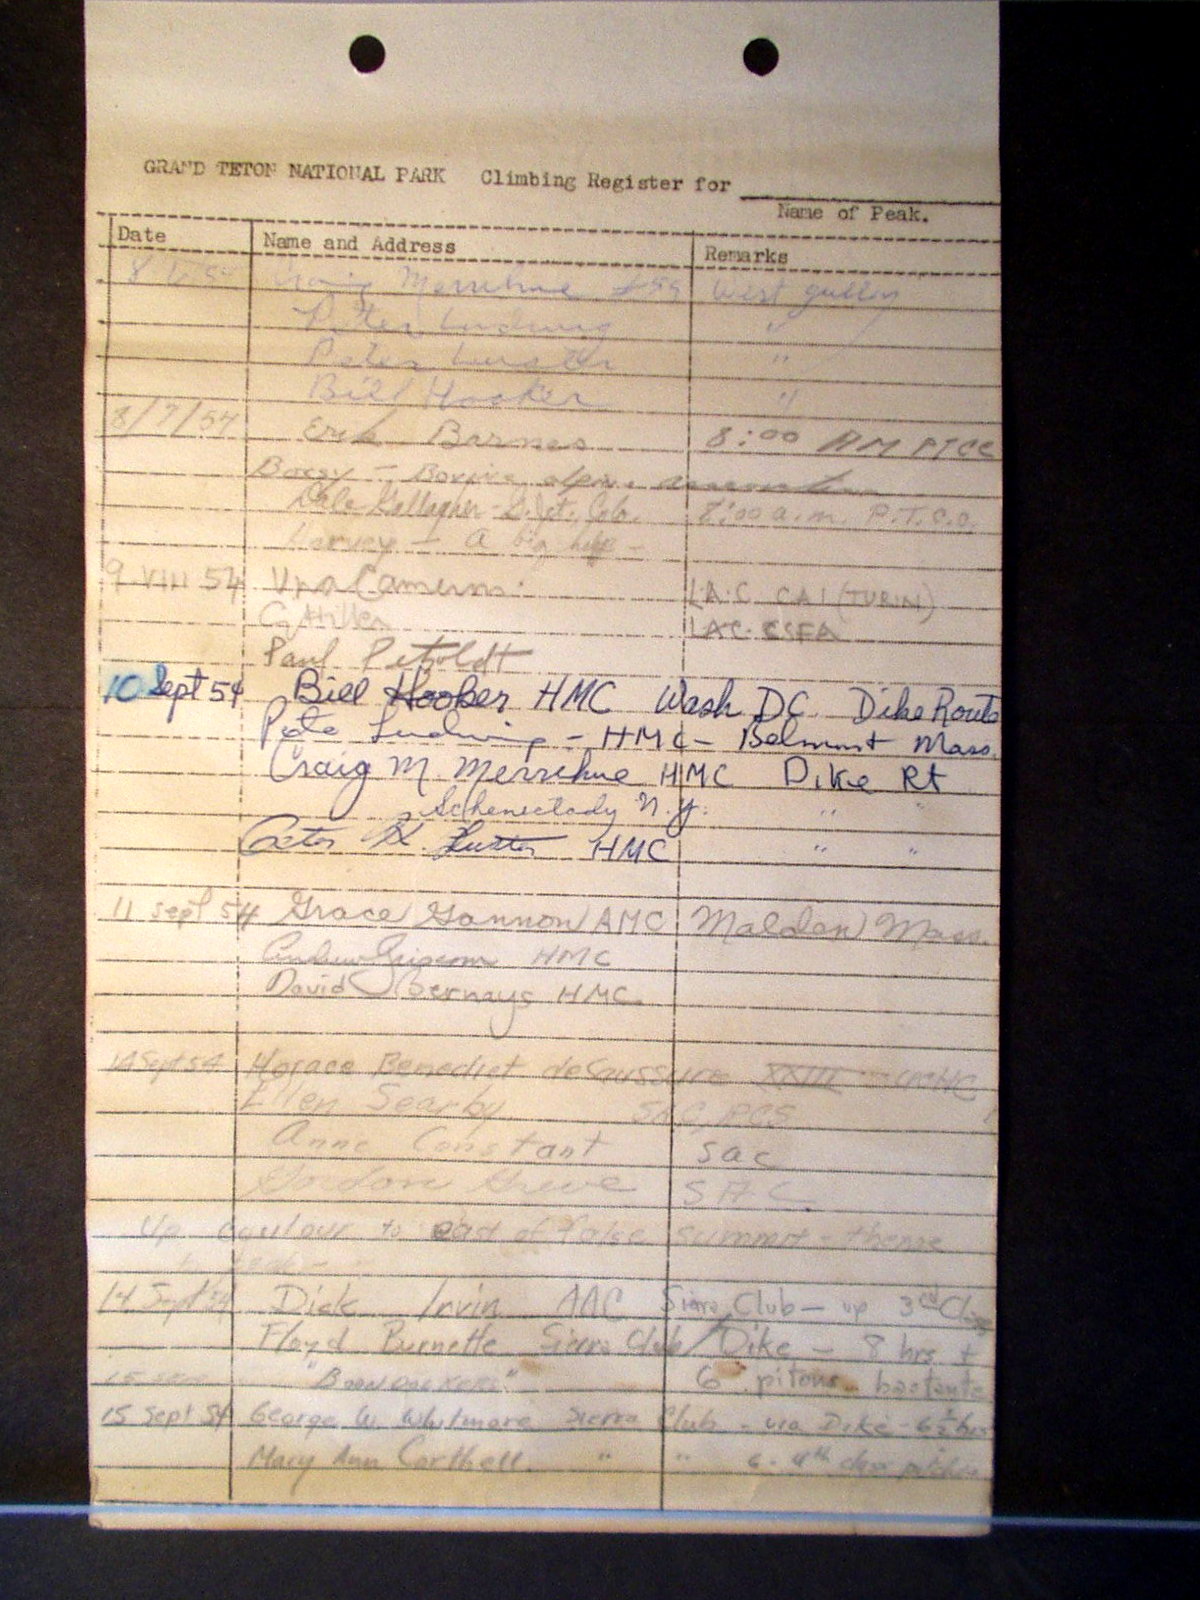 GRAND TETON NATIONAL PARK Climbing Register for
Name of Peak.
Date Name and Address Remarks
Craig Merrihue West gully
Peter Ludwig "
Peter "
Bill Hooker "
8/7/54 Erik Barnes 8:00 AM PTCC
Dale Gallagher - G. Jct. Colo. 8:00 a.m. P.T.C.C.
Harvey - a big help -
9 VIII 54 Una Cameron. L.A.C. C.A.I (TURIN)
LAC.
Paul Petzoldt
10 Sept 54 Bill Hooker HMC Wash DC. Dike Route
Pete Ludwig - HMC - Belmont Mass.
Craig M. Merrihue HMC Dike Rt
Schenectady N.Y. " "
Peter HMC " "
11 Sept 54 Grace Gannon AMC Malden Mass.
HMC
David Bernays HMC.
14 Sept 54 Horace Benedict deSaussure XXIII
Ellen Searby SAC, RCS
Anne Constant SAC
SAC
Up couloir to east of false summit - thence
14 Sept 54 Dick Irvin AAC Sierra Club - up 3rd Class
Floyd Burnette Sierra Club Dike - 8 hrs +
6 pitons bastante
15 Sept 54 George W. Whitmore Sierra Club - via Dike - 6½ hrs
Mary Ann Corthell. " " 6 - 4th class pitches